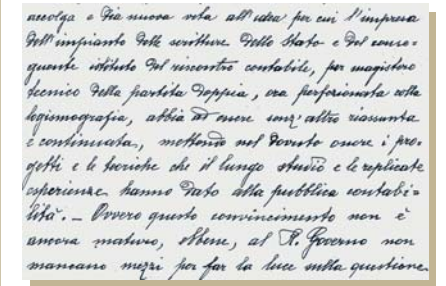 accolga e dia nuova vita all'idea per cui l'impresa
dell'impianto delle scritture dello Stato e del conse=
guente istituto del riscontro contabile, per magistero
tecnico della partita doppia, ora perfezionata colla
logismografia, abbia ad essere senz'altro riassunta
e continuata, mettendo nel dovuto onore i pro=
getti e le teoriche che il lungo studio e le replicate
esperienze hanno dato alla pubblica contabi=
lità. — Ovvero questo convincimento non è
ancora maturo, ebbene, al R. Governo non
mancano mezzi per far la luce sulla questione.